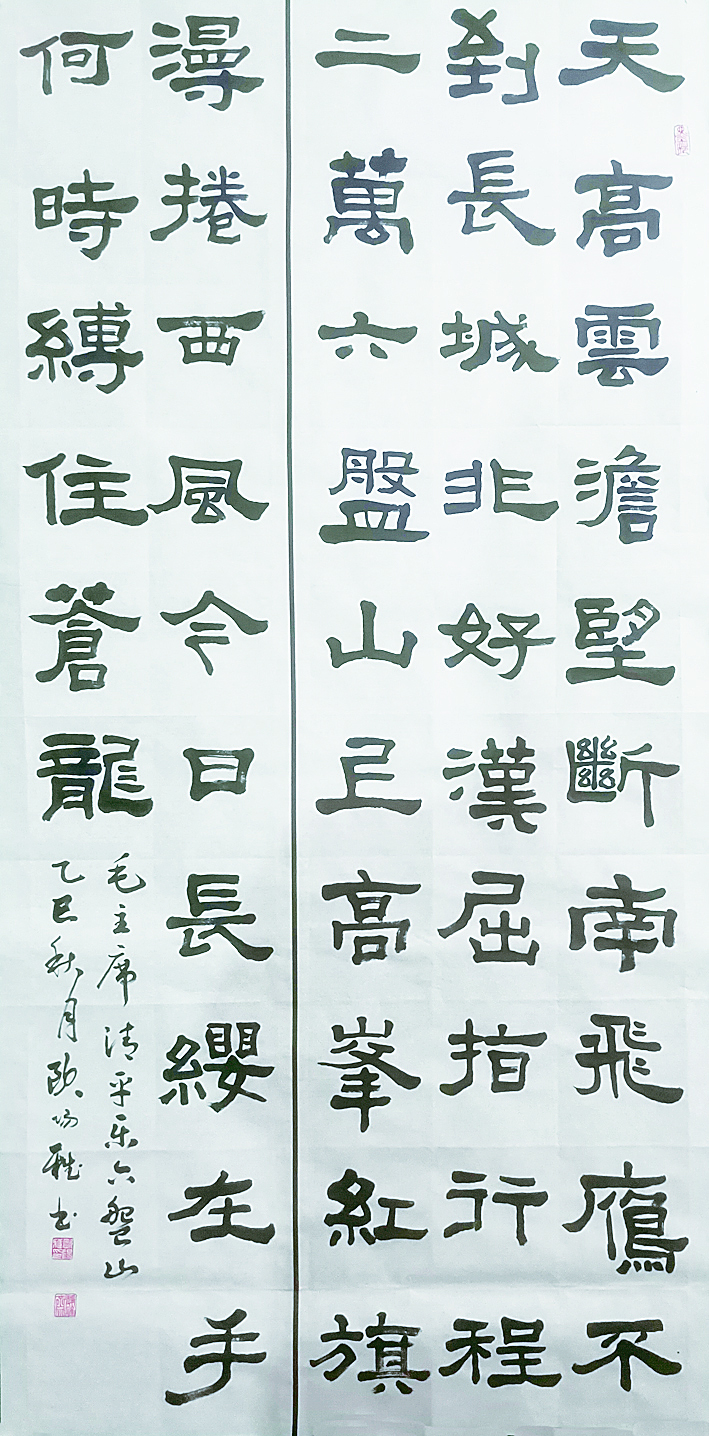 天高雲澹望斷南飛鴈不
到長城非好漢屈指行程
二萬六盤山上高峯紅旗
漫捲西風今日長纓在手
何時縛住蒼龍
毛主席清平乐六盤山
乙巳秋月欧阳书